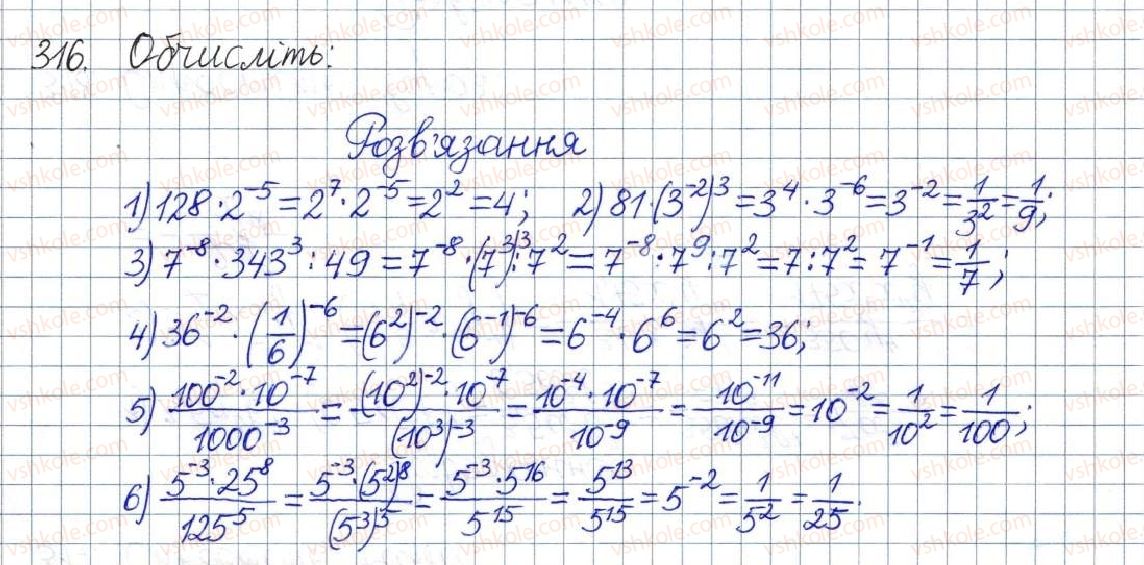 316. Обчисліть:
Розв'язання
1) 128·2⁻⁵=2⁷·2⁻⁵=2²=4; 2) 81·(3⁻²)³=3⁴·3⁻⁶=3⁻²=1/3²=1/9;
3) 7⁻⁸·343³:49=7⁻⁸·(7³)³:7²=7⁻⁸·7⁹:7²=7:7²=7⁻¹=1/7;
4) 36⁻²·(1/6)⁻⁶=(6²)⁻²·(6⁻¹)⁻⁶=6⁻⁴·6⁶=6²=36;
5) (100⁻²·10⁻⁷)/(1000⁻³)=((10²)⁻²·10⁻⁷)/((10³)⁻³)=(10⁻⁴·10⁻⁷)/(10⁻⁹)=10⁻¹¹/10⁻⁹=10⁻²=1/10²=1/100;
6) (5⁻³·25⁸)/(125⁵)=(5⁻³·(5²)⁸)/((5³)⁵)=(5⁻³·5¹⁶)/(5¹⁵)=5¹³/5¹⁵=5⁻²=1/5²=1/25.
vshkole.com